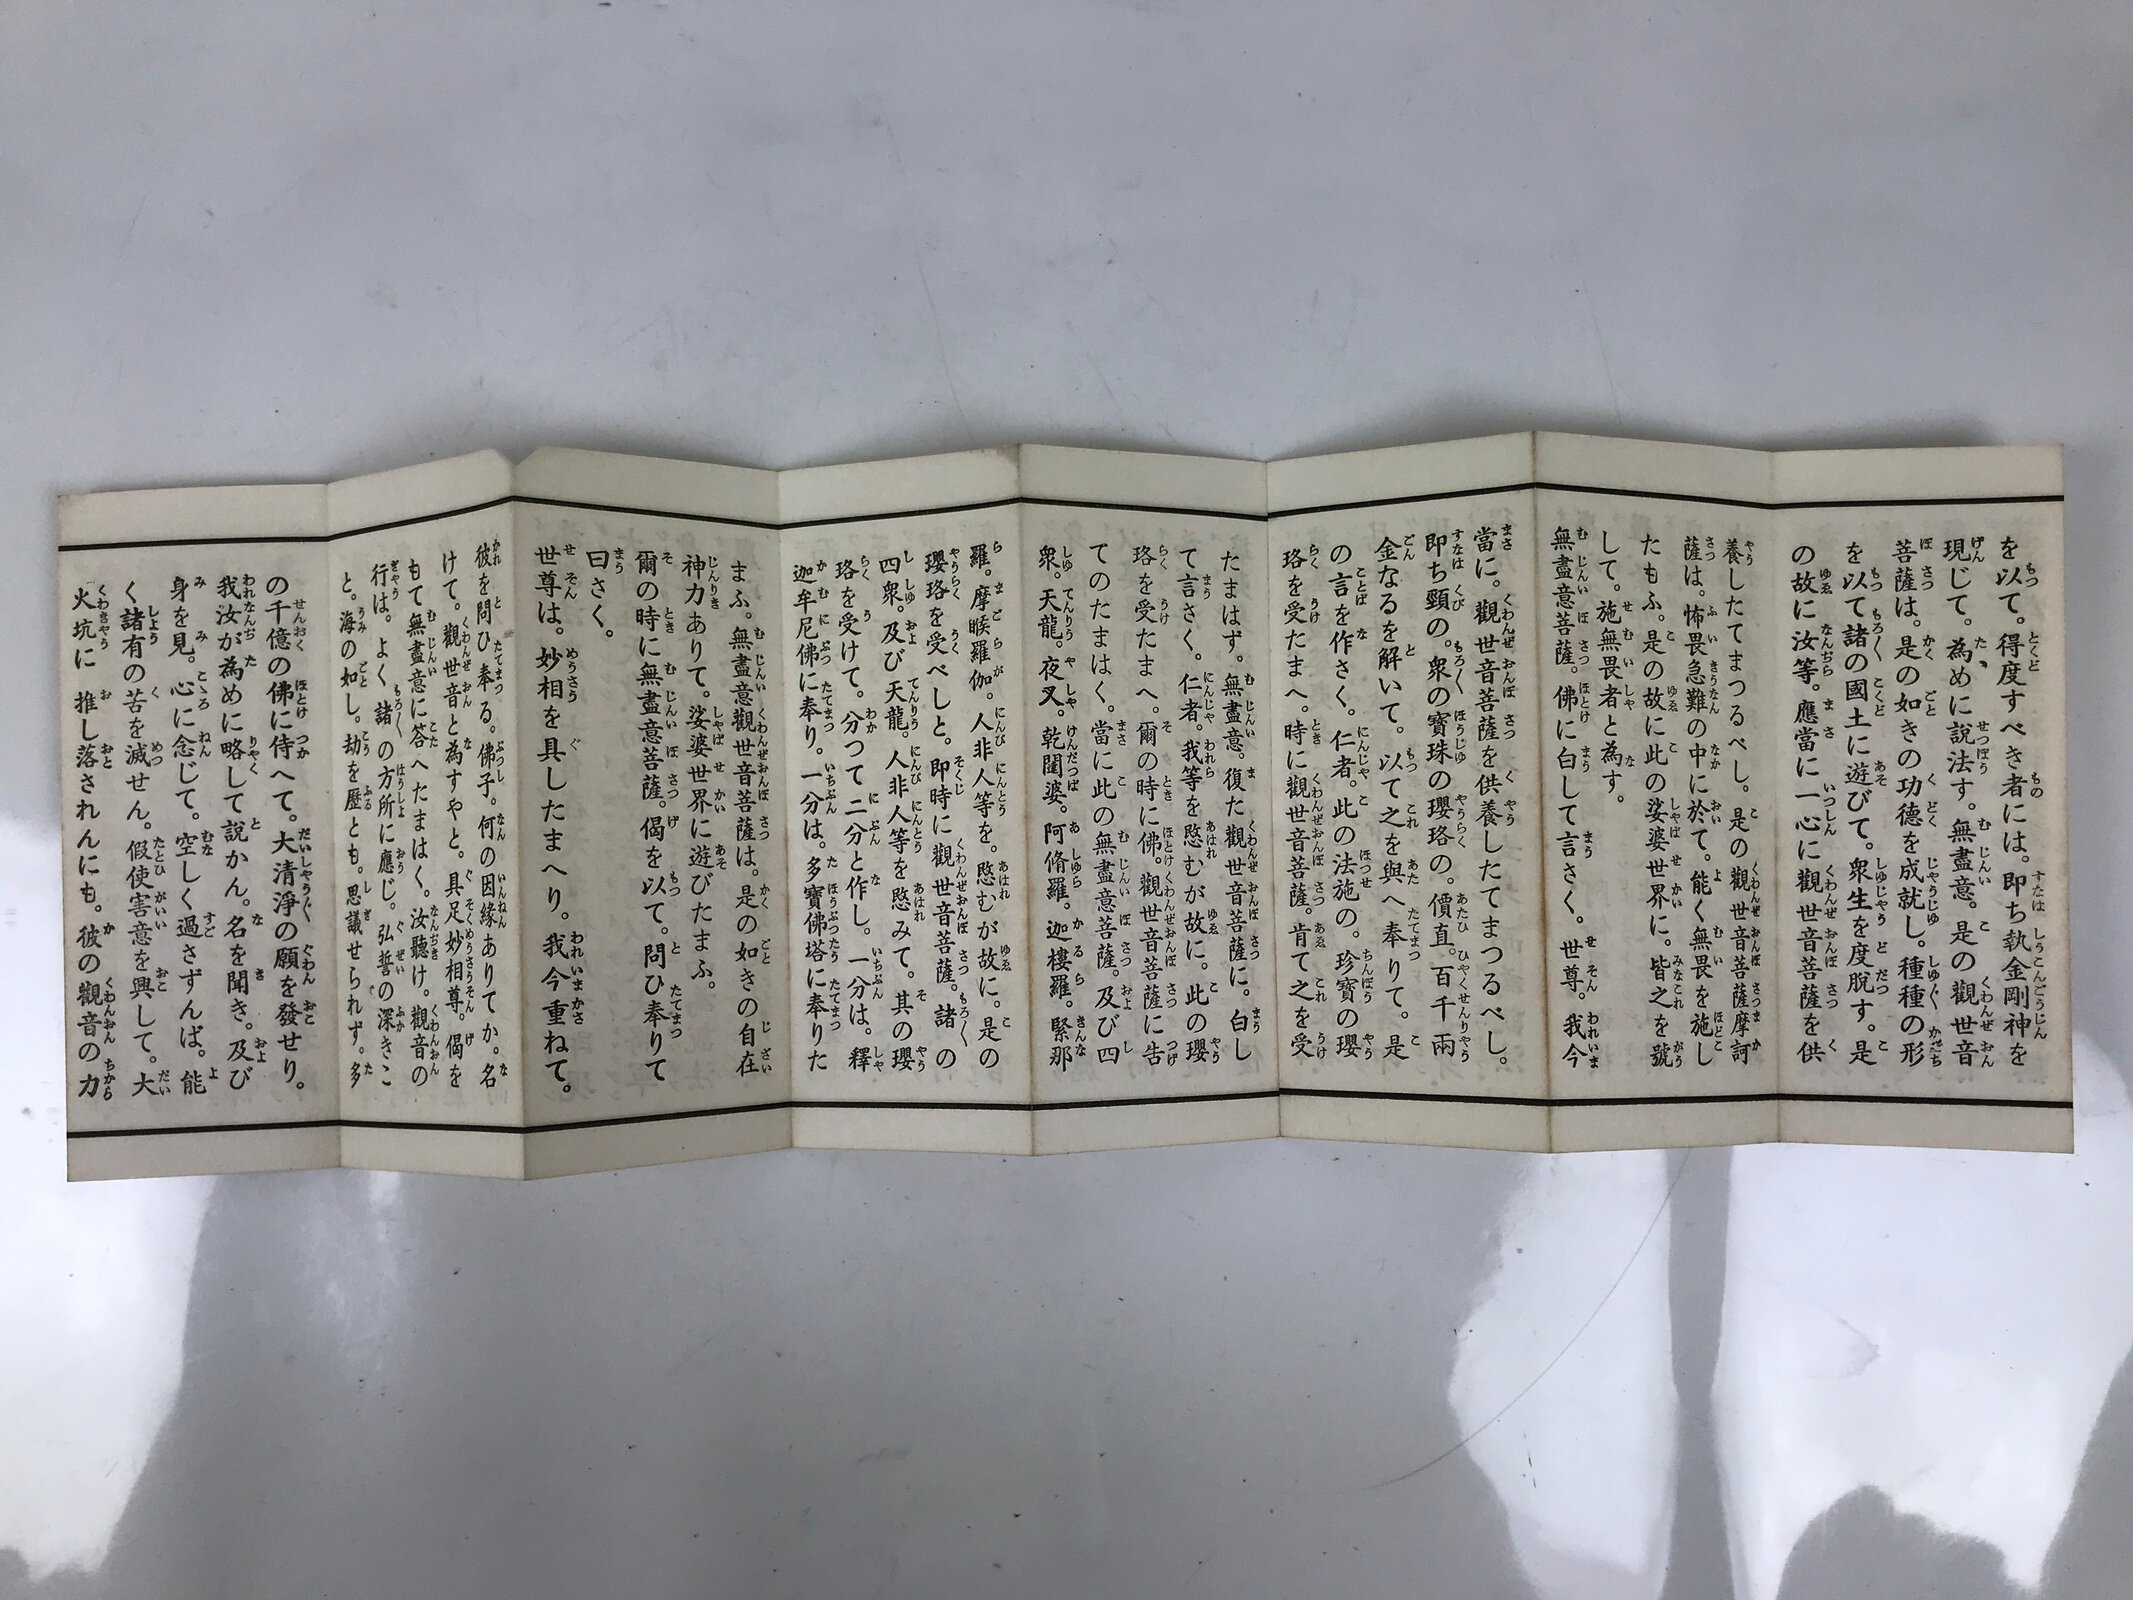 を以て。得度すべき者には。即ち執金剛神を
現じて。為めに説法す。無盡意。是の觀世音
菩薩は。是の如きの功徳を成就し。種種の形
を以て諸の國土に遊びて。衆生を度脱す。是
の故に汝等。應當に一心に觀世音菩薩を供
養したてまつるべし。是の觀世音菩薩摩訶
薩は。怖畏急難の中に於て。能く無畏を施し
たもふ。是の故に此の娑婆世界に。皆之を號
して。施無畏者と為す。
無盡意菩薩。佛に白して言さく。世尊。我今
當に。觀世音菩薩を供養したてまつるべし。
即ち頸の。衆の寶珠の瓔珞の。價直。百千兩
金なるを解いて。以て之を與へ奉りて。是
の言を作さく。仁者。此の法施の。珍寶の瓔
珞を受たまへ。時に觀世音菩薩。肯て之を受
たまはず。無盡意。復た觀世音菩薩に。白し
て言さく。仁者。我等を愍むが故に。此の瓔
珞を受たまへ。爾の時に佛。觀世音菩薩に告
てのたまはく。當に此の無盡意菩薩。及び四
衆。天龍。夜叉。乾闥婆。阿脩羅。迦樓羅。緊那
羅。摩睺羅伽。人非人等を。愍むが故に。是の
瓔珞を受べしと。即時に觀世音菩薩。諸の
四衆。及び天龍。人非人等を愍みて。其の瓔
珞を受けて。分つて二分と作し。一分は。釋
迦牟尼佛に奉り。一分は。多寶佛塔に奉りた
まふ。無盡意觀世音菩薩は。是の如きの自在
神力ありて。娑婆世界に遊びたまふ。
爾の時に無盡意菩薩。偈を以て。問ひ奉りて
曰さく。
世尊は。妙相を具したまへり。我今重ねて。
彼を問ひ奉る。佛子。何の因縁ありてか。名
けて。觀世音と為すやと。具足妙相尊。偈を
もて無盡意に答へたまはく。汝聽け。觀音の
行は。よく諸の方所に應じ。弘誓の深きこ
と。海の如し。劫を歴とも。思議せられず。多
の千億の佛に侍へて。大清淨の願を發せり。
我汝が為めに略して説かん。名を聞き。及び
身を見。心に念じて。空しく過さずんば。能
く諸有の苦を滅せん。假使害意を興して。大
火坑に 推し落されんにも。彼の觀音の力